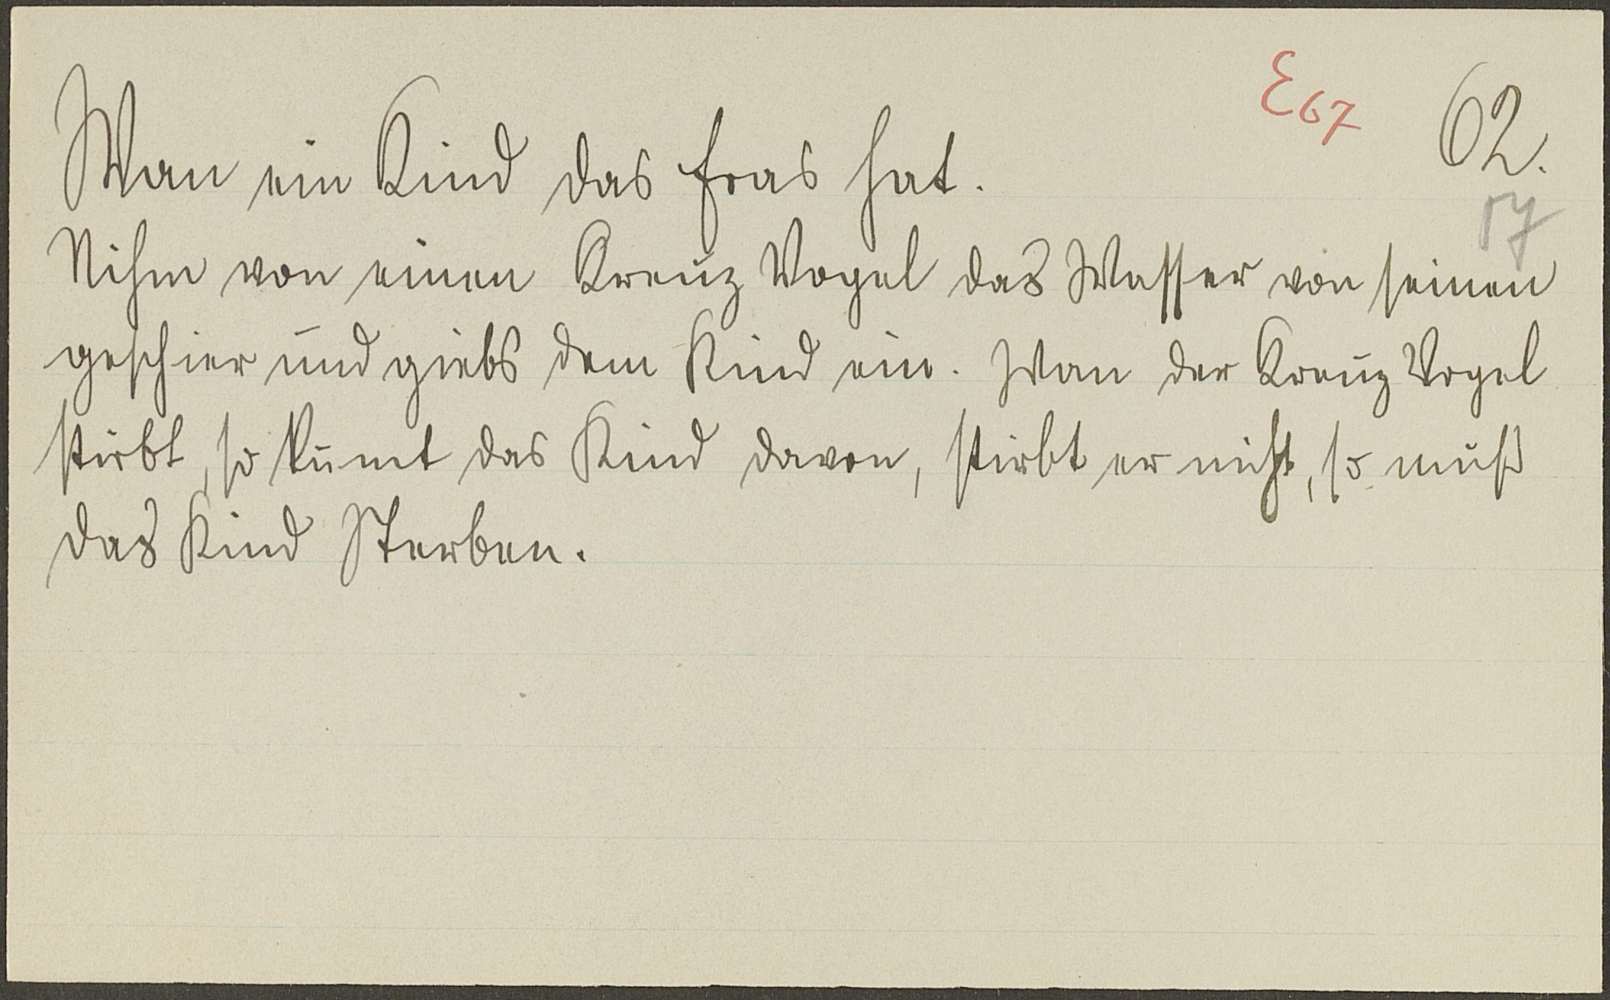 E67 62.
Wan ein Kind das fras hat.
Nihm von einen Kreuz Vogel das Wasser von seinen
geschier und giebs dem Kind ein. Wan der Kreuz Vogel
stirbt, so kumt das Kind davon, stirbt er nicht, so muß
das Kind Sterben.